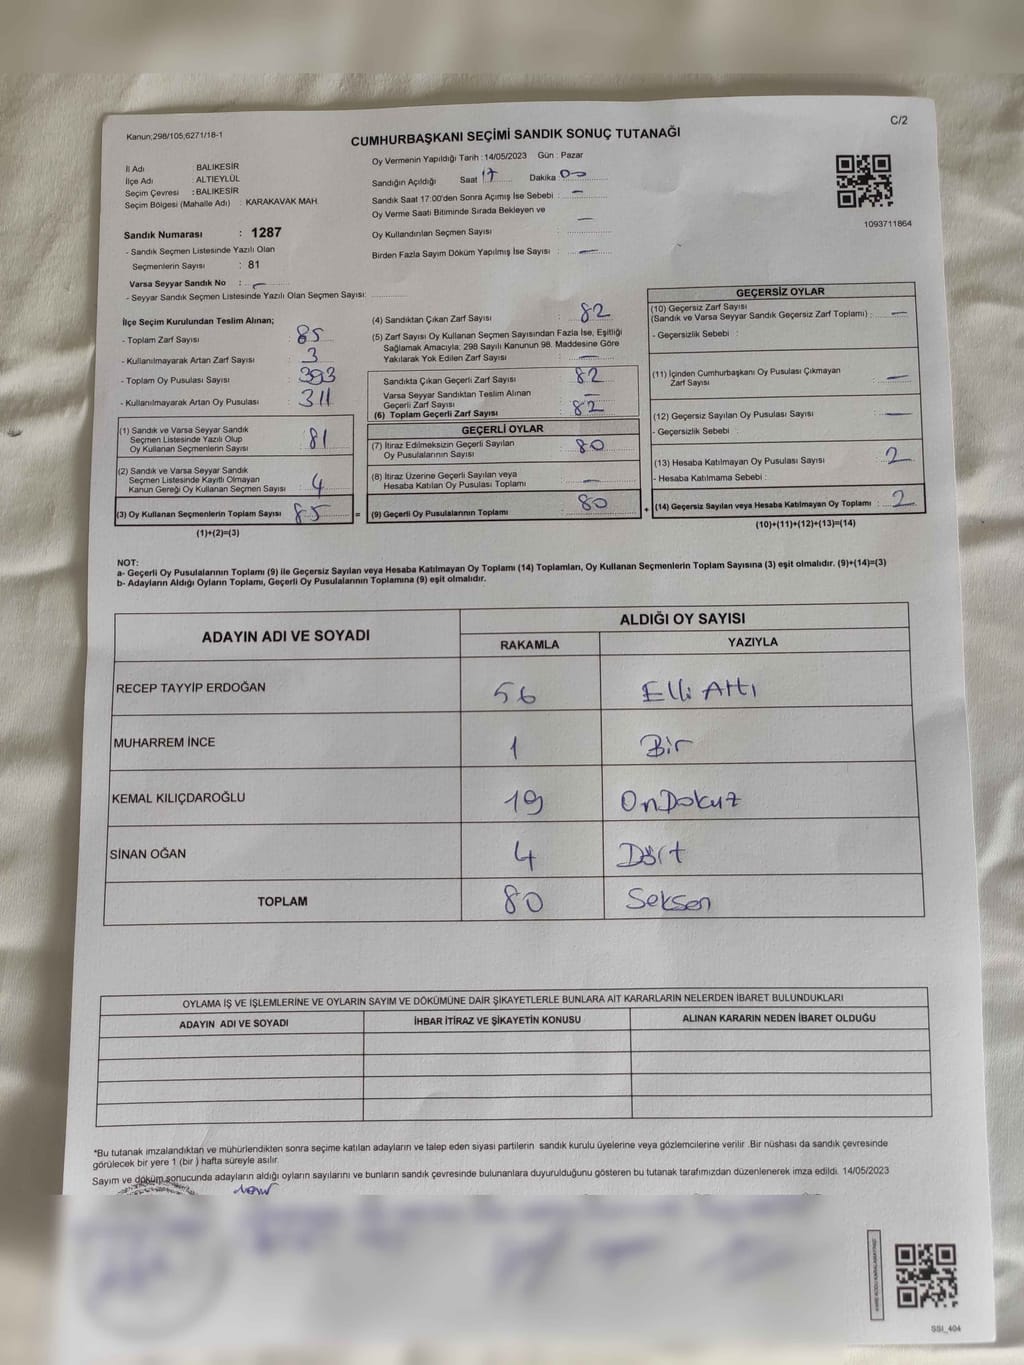 Kanun;298/105;6271/18-1
C/2
CUMHURBAŞKANI SEÇİMİ SANDIK SONUÇ TUTANAĞI
İl Adı : BALIKESİR
İlçe Adı : ALTIEYLÜL
Seçim Çevresi : BALIKESİR
Seçim Bölgesi (Mahalle Adı) : KARAKAVAK MAH.
Sandık Numarası : 1287
- Sandık Seçmen Listesinde Yazılı Olan
Seçmenlerin Sayısı : 81
Varsa Seyyar Sandık No : –
- Seyyar Sandık Seçmen Listesinde Yazılı Olan Seçmen Sayısı:
Oy Vermenin Yapıldığı Tarih : 14/05/2023 Gün : Pazar
Sandığın Açıldığı Saat 17 Dakika 00
Sandık Saat 17:00'den Sonra Açımış İse Sebebi : –
Oy Verme Saati Bitiminde Sırada Bekleyen ve –
Oy Kullandırılan Seçmen Sayısı :
Birden Fazla Sayım Döküm Yapılmış İse Sayısı : –
1093711864
İlçe Seçim Kurulundan Teslim Alınan;
- Toplam Zarf Sayısı : 85
- Kullanılmayarak Artan Zarf Sayısı : 3
- Toplam Oy Pusulası Sayısı : 393
- Kullanılmayarak Artan Oy Pusulası : 311
(1) Sandık ve Varsa Seyyar Sandık
Seçmen Listesinde Yazılı Olup
Oy Kullanan Seçmenlerin Sayısı : 81
(2) Sandık ve Varsa Seyyar Sandık
Seçmen Listesinde Kayıtlı Olmayan
Kanun Gereği Oy Kullanan Seçmen Sayısı : 4
(3) Oy Kullanan Seçmenlerin Toplam Sayısı : 85
(1)+(2)=(3)
(4) Sandıktan Çıkan Zarf Sayısı : 82
(5) Zarf Sayısı Oy Kullanan Seçmen Sayısından Fazla İse, Eşitliği
Sağlamak Amacıyla; 298 Sayılı Kanunun 98. Maddesine Göre
Yakılarak Yok Edilen Zarf Sayısı : –
Sandıkta Çıkan Geçerli Zarf Sayısı : 82
Varsa Seyyar Sandıktan Teslim Alınan
Geçerli Zarf Sayısı : –
(6) Toplam Geçerli Zarf Sayısı : 82
GEÇERLİ OYLAR
(7) İtiraz Edilmeksizin Geçerli Sayılan
Oy Pusulalarının Sayısı : 80
(8) İtiraz Üzerine Geçerli Sayılan veya
Hesaba Katılan Oy Pusulası Toplamı : –
= (9) Geçerli Oy Pusulalarının Toplamı : 80
GEÇERSİZ OYLAR
(10) Geçersiz Zarf Sayısı
(Sandık ve Varsa Seyyar Sandık Geçersiz Zarf Toplamı) : –
- Geçersizlik Sebebi :
(11) İçinden Cumhurbaşkanı Oy Pusulası Çıkmayan
Zarf Sayısı : –
(12) Geçersiz Sayılan Oy Pusulası Sayısı : –
- Geçersizlik Sebebi :
(13) Hesaba Katılmayan Oy Pusulası Sayısı : 2
- Hesaba Katılmama Sebebi :
+ (14) Geçersiz Sayılan veya Hesaba Katılmayan Oy Toplamı : 2
(10)+(11)+(12)+(13)=(14)
NOT:
a- Geçerli Oy Pusulalarının Toplamı (9) ile Geçersiz Sayılan veya Hesaba Katılmayan Oy Toplamı (14) Toplamları, Oy Kullanan Seçmenlerin Toplam Sayısına (3) eşit olmalıdır. (9)+(14)=(3)
b- Adayların Aldığı Oyların Toplamı, Geçerli Oy Pusulalarının Toplamına (9) eşit olmalıdır.
ADAYIN ADI VE SOYADI
ALDIĞI OY SAYISI
RAKAMLA YAZIYLA
RECEP TAYYİP ERDOĞAN 56 Elli Altı
MUHARREM İNCE 1 Bir
KEMAL KILIÇDAROĞLU 19 OnDokuz
SİNAN OĞAN 4 Dört
TOPLAM 80 Seksen
OYLAMA İŞ VE İŞLEMLERİNE VE OYLARIN SAYIM VE DÖKÜMÜNE DAİR ŞİKAYETLERLE BUNLARA AİT KARARLARIN NELERDEN İBARET BULUNDUKLARI
ADAYIN ADI VE SOYADI İHBAR İTİRAZ VE ŞİKAYETİN KONUSU ALINAN KARARIN NEDEN İBARET OLDUĞU
*Bu tutanak imzalandıktan ve mühürlendikten sonra seçime katılan adayların ve talep eden siyasi partilerin sandık kurulu üyelerine veya gözlemcilerine verilir .Bir nüshası da sandık çevresinde
görülecek bir yere 1 (bir ) hafta süreyle asılır.
Sayım ve döküm sonucunda adayların aldığı oyların sayılarını ve bunların sandık çevresinde bulunanlara duyurulduğunu gösteren bu tutanak tarafımızdan düzenlenerek imza edildi. 14/05/2023
SSI_404